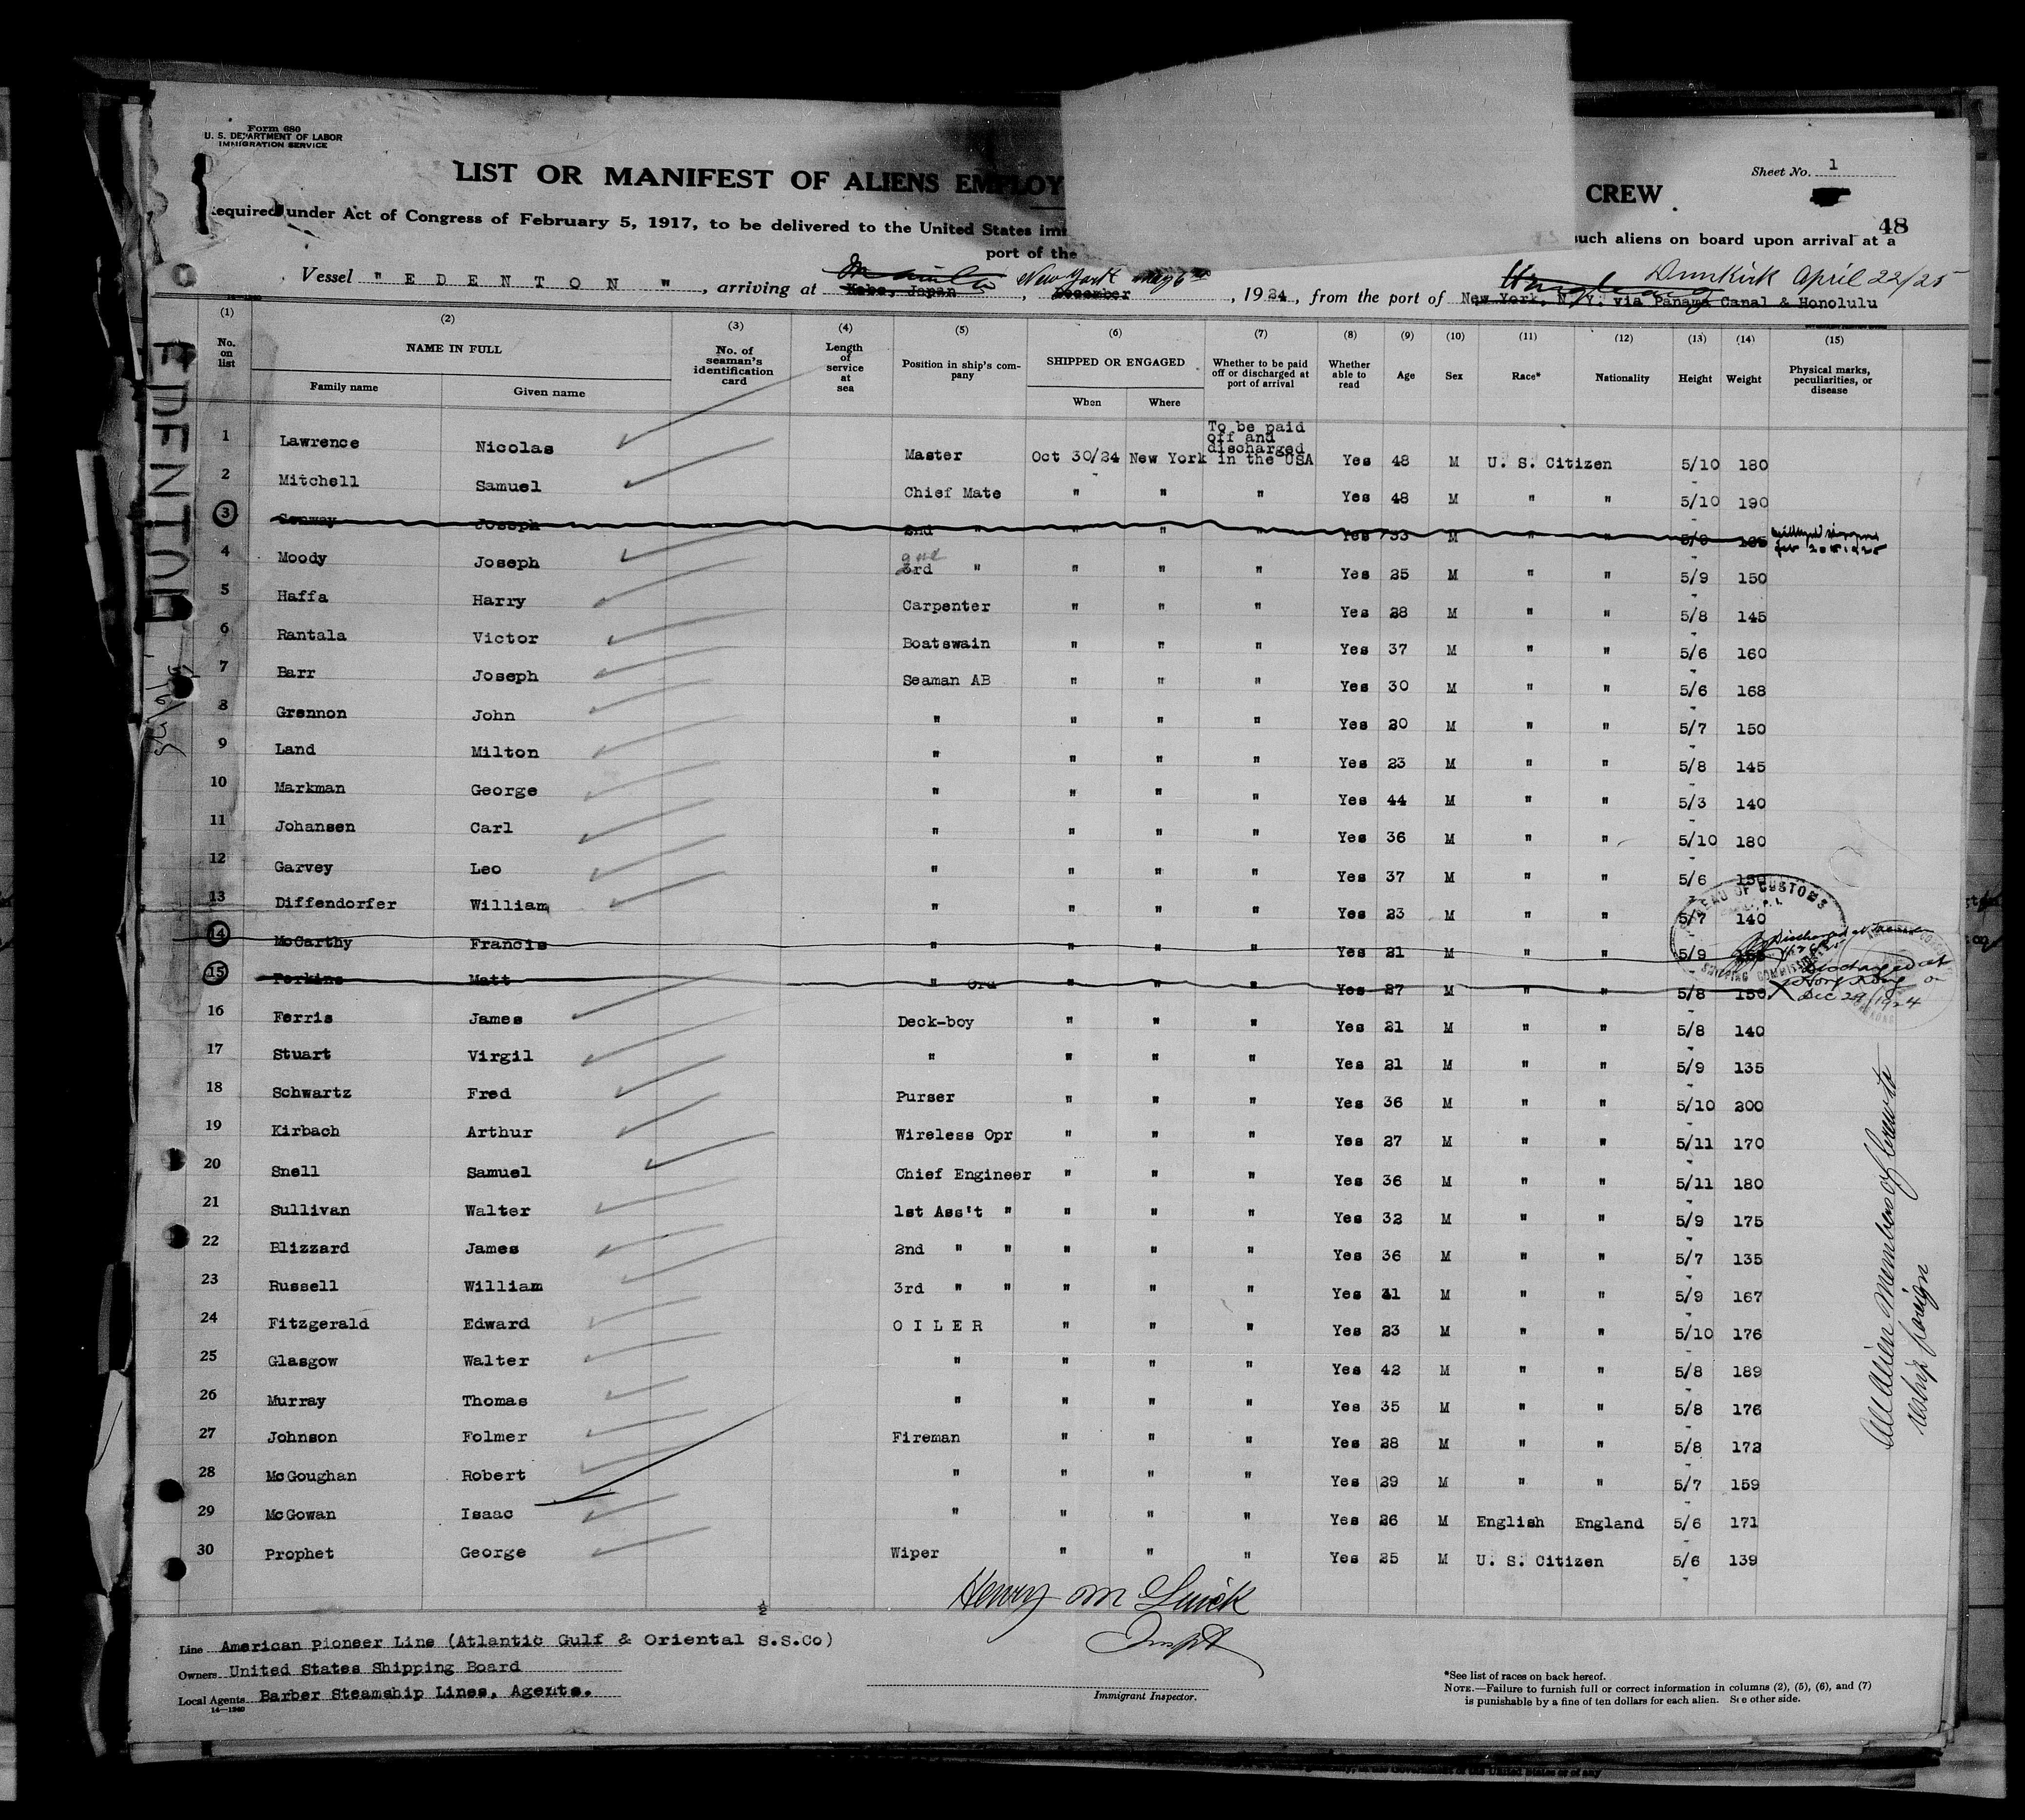 Form 680
U. S. DEPARTMENT OF LABOR
IMMIGRATION SERVICE
Sheet No. 1
LIST OR MANIFEST OF ALIENS EMPLOY CREW
48
equired under Act of Congress of February 5, 1917, to be delivered to the United States imm such aliens on board upon arrival at a
port of the
Vessel " E D E N T O N ", arriving at Manila Kobe, Japan New York, December May 6th, 1924, from the port of New York, N.Y. via Panama Canal & Honolulu Dunkirk April 22/25
EDENTON
(1) (2) (3) (4) (5) (6) (7) (8) (9) (10) (11) (12) (13) (14) (15)
No. on list NAME IN FULL No. of seaman's identification card Length of service at sea Position in ship's company SHIPPED OR ENGAGED Whether to be paid off or discharged at port of arrival Whether able to read Age Sex Race* Nationality Height Weight Physical marks, peculiarities, or disease
Family name Given name When Where
1 Lawrence Nicolas Master Oct 30/24 New York To be paid off and discharged in the USA Yes 48 M U. S. Citizen 5/10 180
2 Mitchell Samuel Chief Mate " " " Yes 48 M " " 5/10 190
3 Conway Joseph 2nd " " " " Yes 33 M " " 5/8 165
4 Moody Joseph 3rd 2nd " " " " Yes 25 M " " 5/9 150
5 Haffa Harry Carpenter " " " Yes 28 M " " 5/8 145
6 Rantala Victor Boatswain " " " Yes 37 M " " 5/6 160
7 Barr Joseph Seaman AB " " " Yes 30 M " " 5/6 168
8 Grennon John " " " " Yes 20 M " " 5/7 150
9 Land Milton " " " " Yes 23 M " " 5/8 145
10 Markman George " " " " Yes 44 M " " 5/3 140
11 Johansen Carl " " " " Yes 36 M " " 5/10 180
12 Garvey Leo " " " " Yes 37 M " " 5/6 150
13 Diffendorfer William " " " " Yes 23 M " " 5/7 140
14 McCarthy Francis " " " " Yes 21 M " " 5/9
15 Perkins Matt " Ord " " " Yes 27 M " " 5/8 150 Discharged at Hong Kong on Dec 29/1924
16 Ferris James Deck-boy " " " Yes 21 M " " 5/8 140
17 Stuart Virgil " " " " Yes 21 M " " 5/9 135
18 Schwartz Fred Purser " " " Yes 36 M " " 5/10 200
19 Kirbach Arthur Wireless Opr " " " Yes 27 M " " 5/11 170
20 Snell Samuel Chief Engineer " " " Yes 36 M " " 5/11 180
21 Sullivan Walter 1st Ass't " " " " Yes 32 M " " 5/9 175
22 Blizzard James 2nd " " " " " Yes 36 M " " 5/7 135
23 Russell William 3rd " " " " " Yes 31 M " " 5/9 167
24 Fitzgerald Edward O I L E R " " " Yes 23 M " " 5/10 176
25 Glasgow Walter " " " " Yes 42 M " " 5/8 189
26 Murray Thomas " " " " Yes 35 M " " 5/8 176
27 Johnson Folmer Fireman " " " Yes 28 M " " 5/8 172
28 McGoughan Robert " " " " Yes 29 M " " 5/7 159
29 McGowan Isaac " " " " Yes 26 M English England 5/6 171
30 Prophet George Wiper " " " Yes 25 M U. S. Citizen 5/6 139
All Alien Members of Crew to
reship foreign
Line American Pioneer Line (Atlantic Gulf & Oriental S.S.Co)
Owners United States Shipping Board
Local Agents Barber Steamship Lines, Agents.
14—1240
Immigrant Inspector.
*See list of races on back hereof.
NOTE.—Failure to furnish full or correct information in columns (2), (5), (6), and (7)
is punishable by a fine of ten dollars for each alien. See other side.